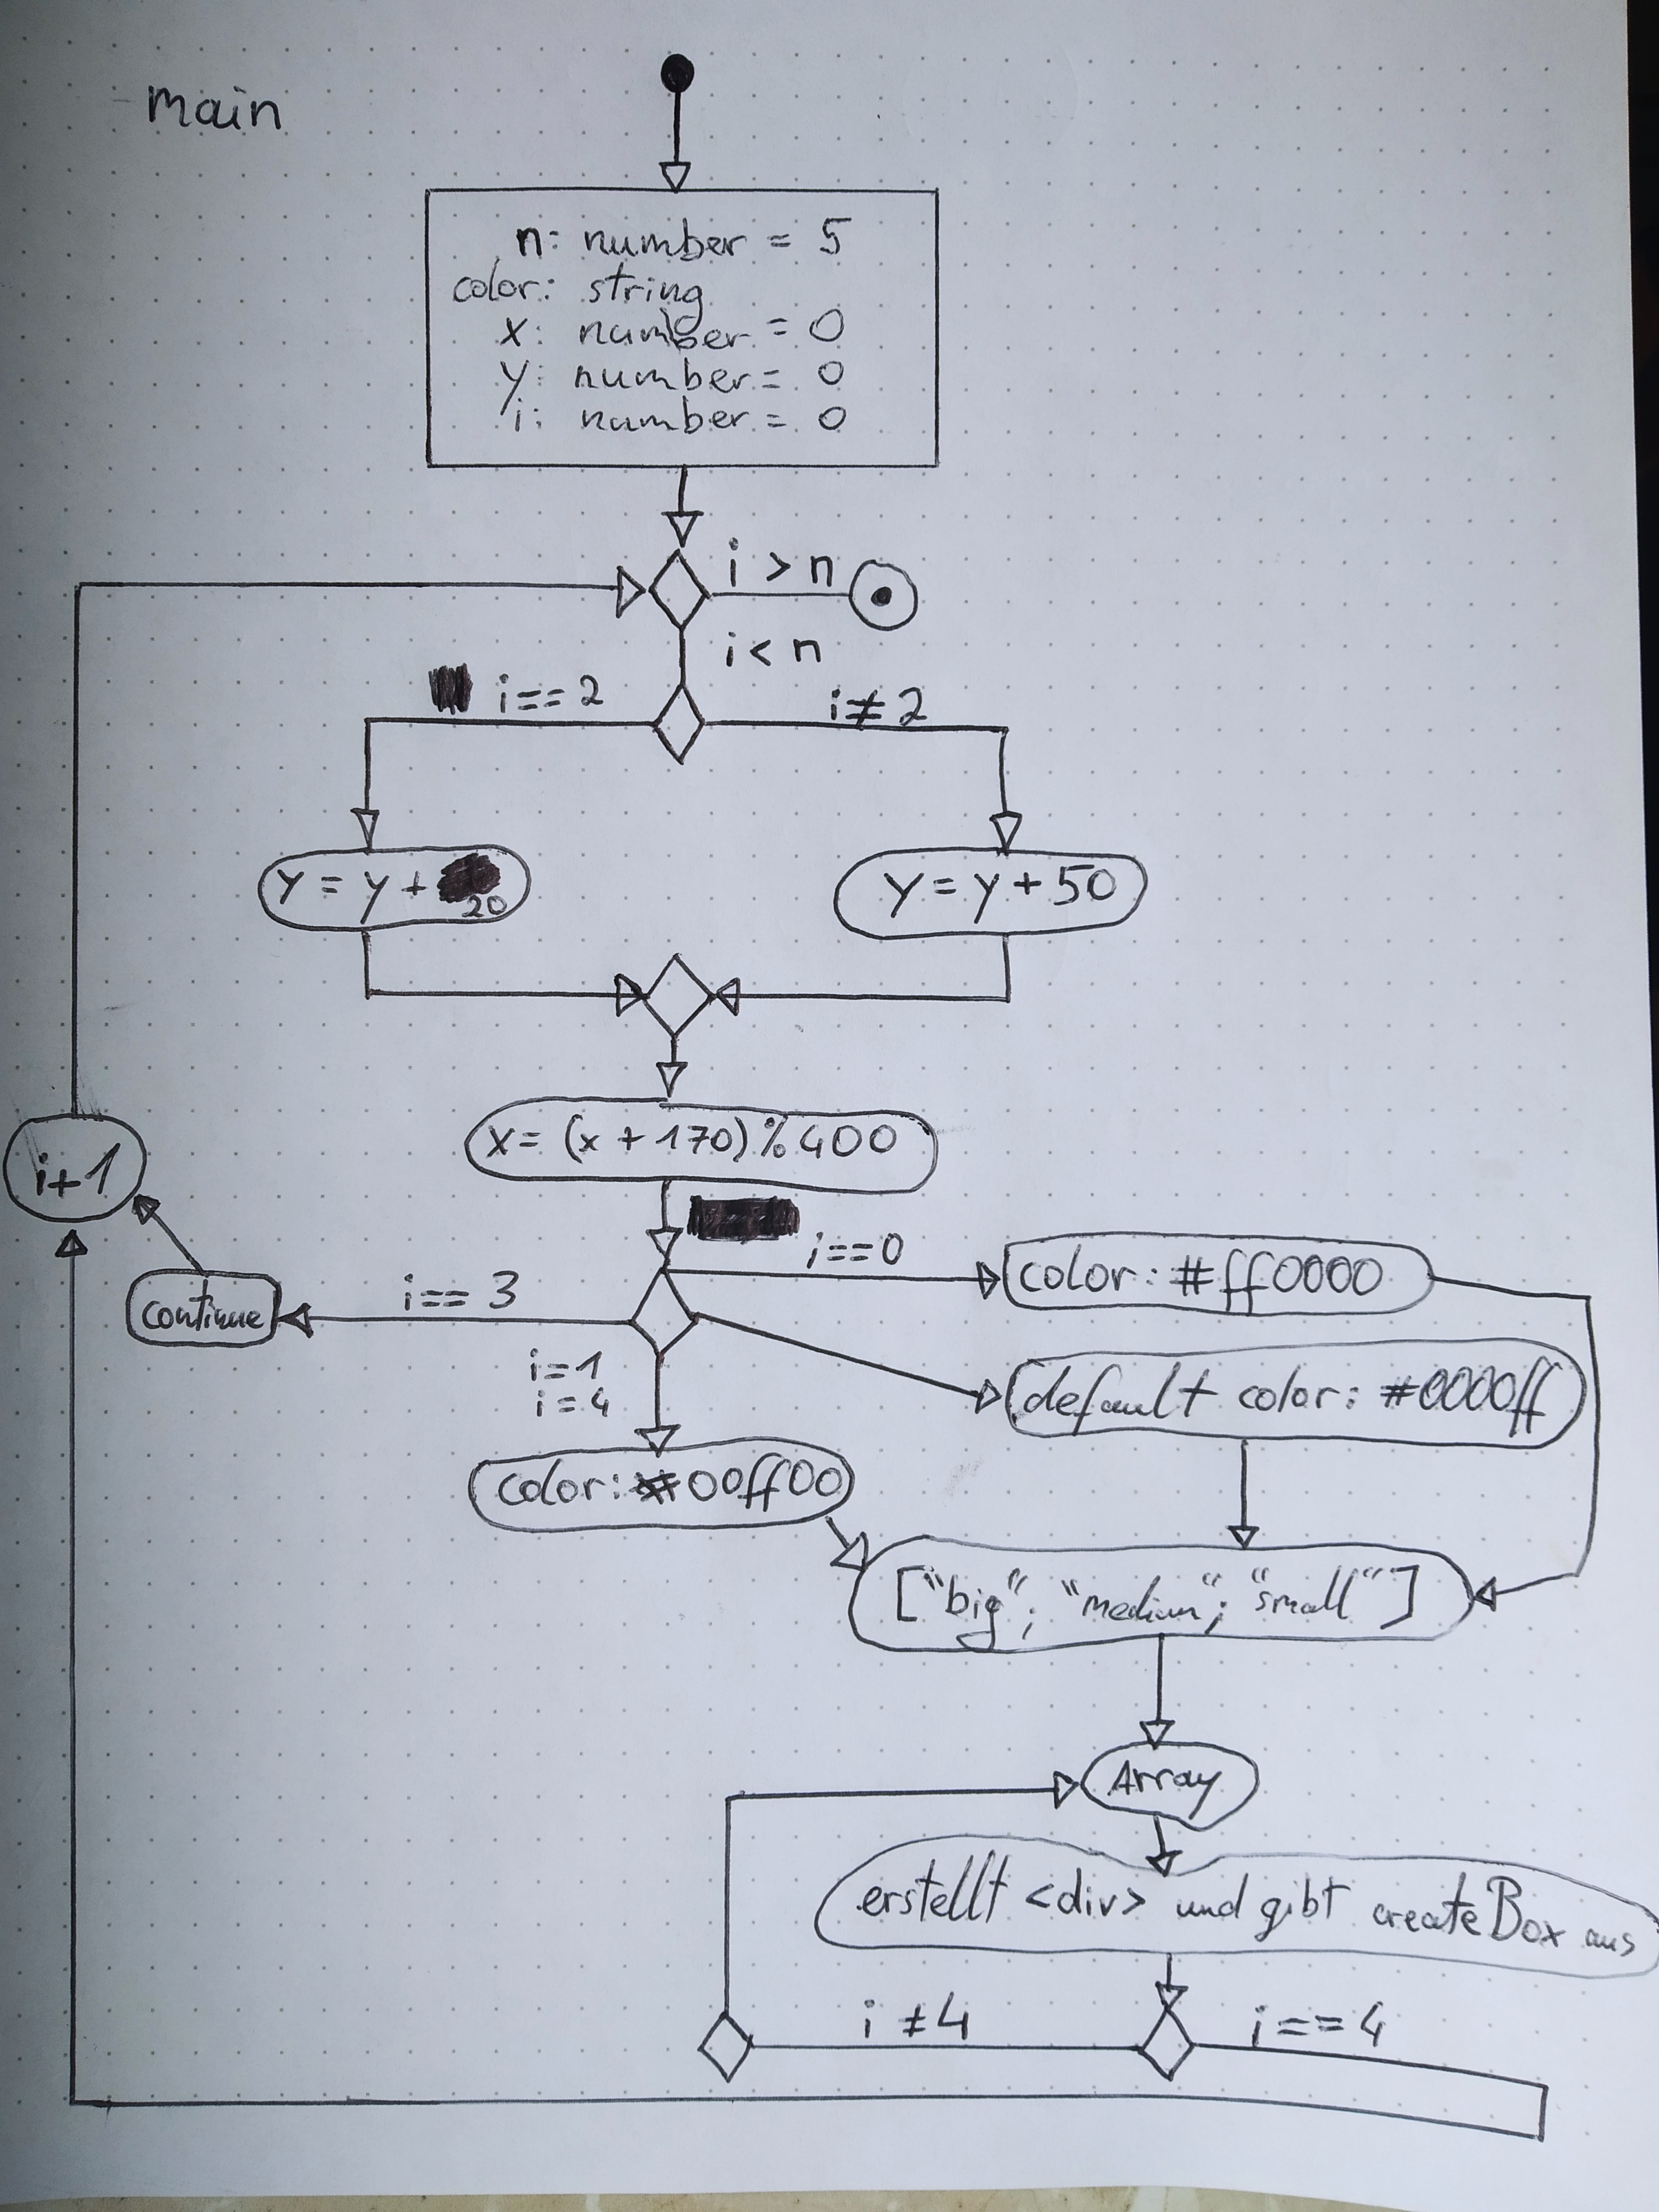 main
n: number = 5
color: string
x: number = 0
y: number = 0
i: number = 0
i > n
i < n
i == 2
i ≠ 2
y = y + 20
y = y + 50
x = (x + 170) % 400
i+1
i==0
color: #ff0000
i== 3
continue
default color: #0000ff
i=1
i=4
color: #00ff00
["big"; "medium"; "small"]
Array
erstellt <div> und gibt createBox aus
i ≠ 4
i == 4